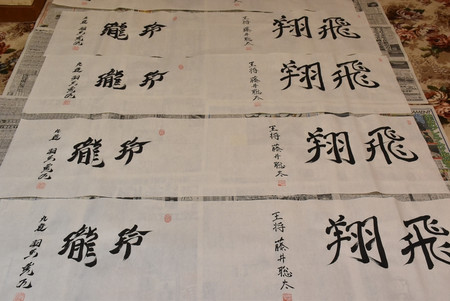 飛翔
王将 藤井聡太
玲瓏
九段 羽生善治
飛翔
王将 藤井聡太
玲瓏
九段 羽生善治
飛翔
王将 藤井聡太
玲瓏
九段 羽生善治
飛翔
王将 藤井聡太
玲瓏
九段 羽生善治